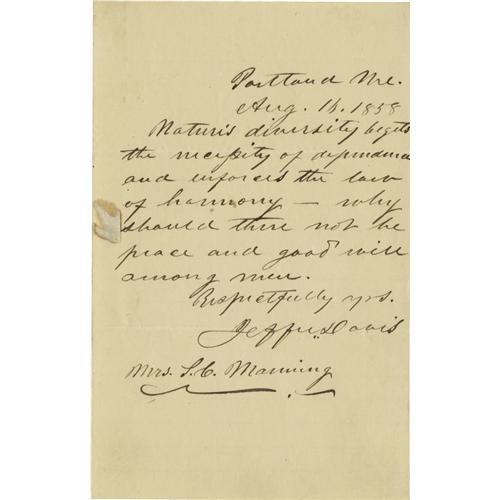 Portland Me.
Aug. 16. 1858
Nature's diversity begets
the necessity of dependence
and enforces the law
of harmony — why
should there not be
peace and good will
among men.
Respectfully yrs.
Jeffn. Davis
Mrs. S. C. Manning